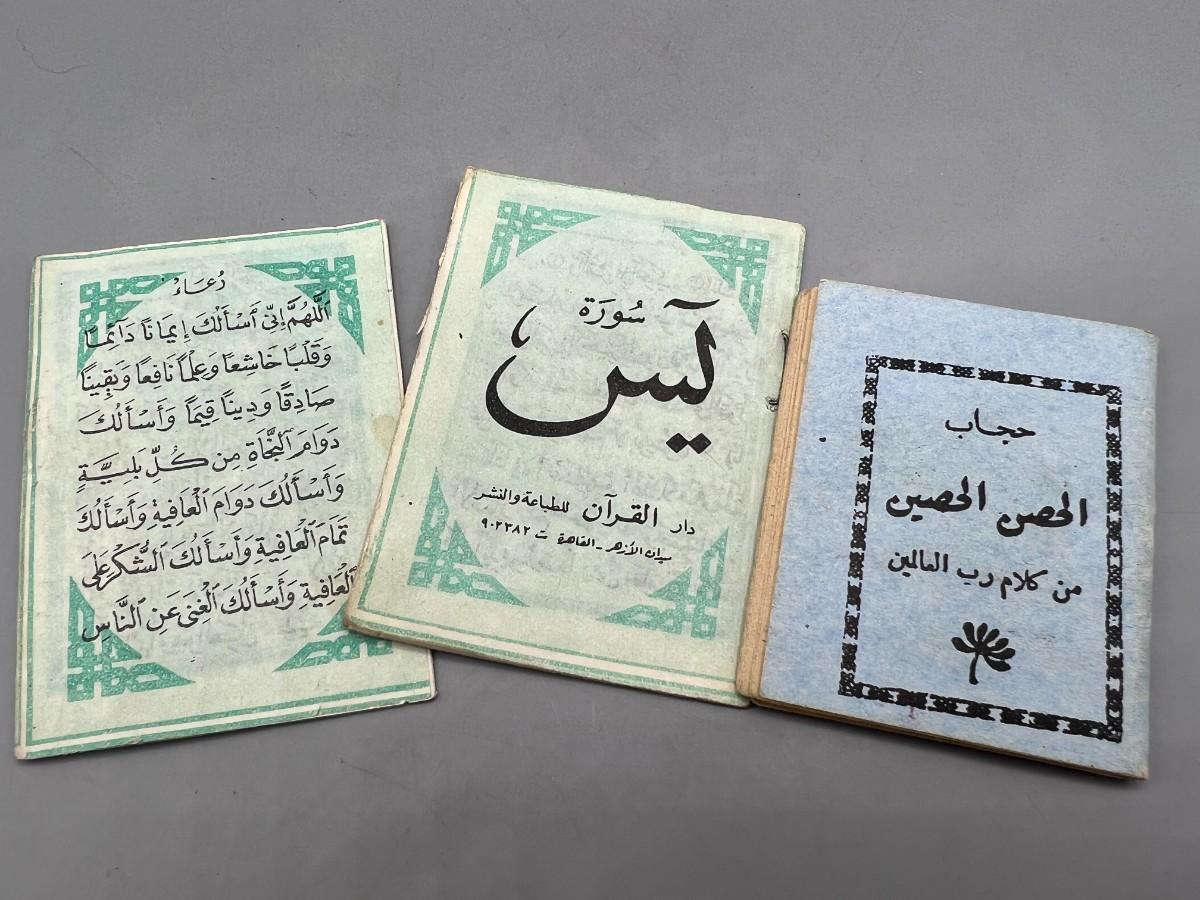 دُعَاءْ
اَللَّهُمَّ إِنِّى أَسْأَلُكَ إِيمَانًا دَآئِمًا
وَقَلْبًا خَاشِعًا وَعِلْمًا نَافِعًا وَيَقِينًا
صَادِقًا وَدِينًا قَيِّمًا وَأَسْأَلُكَ
دَوَامَ النَّجَاةِ مِن كُلِّ بَلِيَّةٍ
وَأَسْأَلُكَ دَوَامَ الْعَافِيَةِ وَأَسْأَلُكَ
تَمَامَ الْعَافِيَةِ وَأَسْأَلُكَ الشُّكْرَ عَلَى
الْعَافِيَةِ وَأَسْأَلُكَ الْغِنَى عَنِ النَّاسِ
سُورَة
يٓس
دار القرآن للطباعة والنشر
ميدان الأزهر - القاهرة ت ٩٠٢٣٨٢
حجاب
الحصن الحصين
من كلام رب العالمين